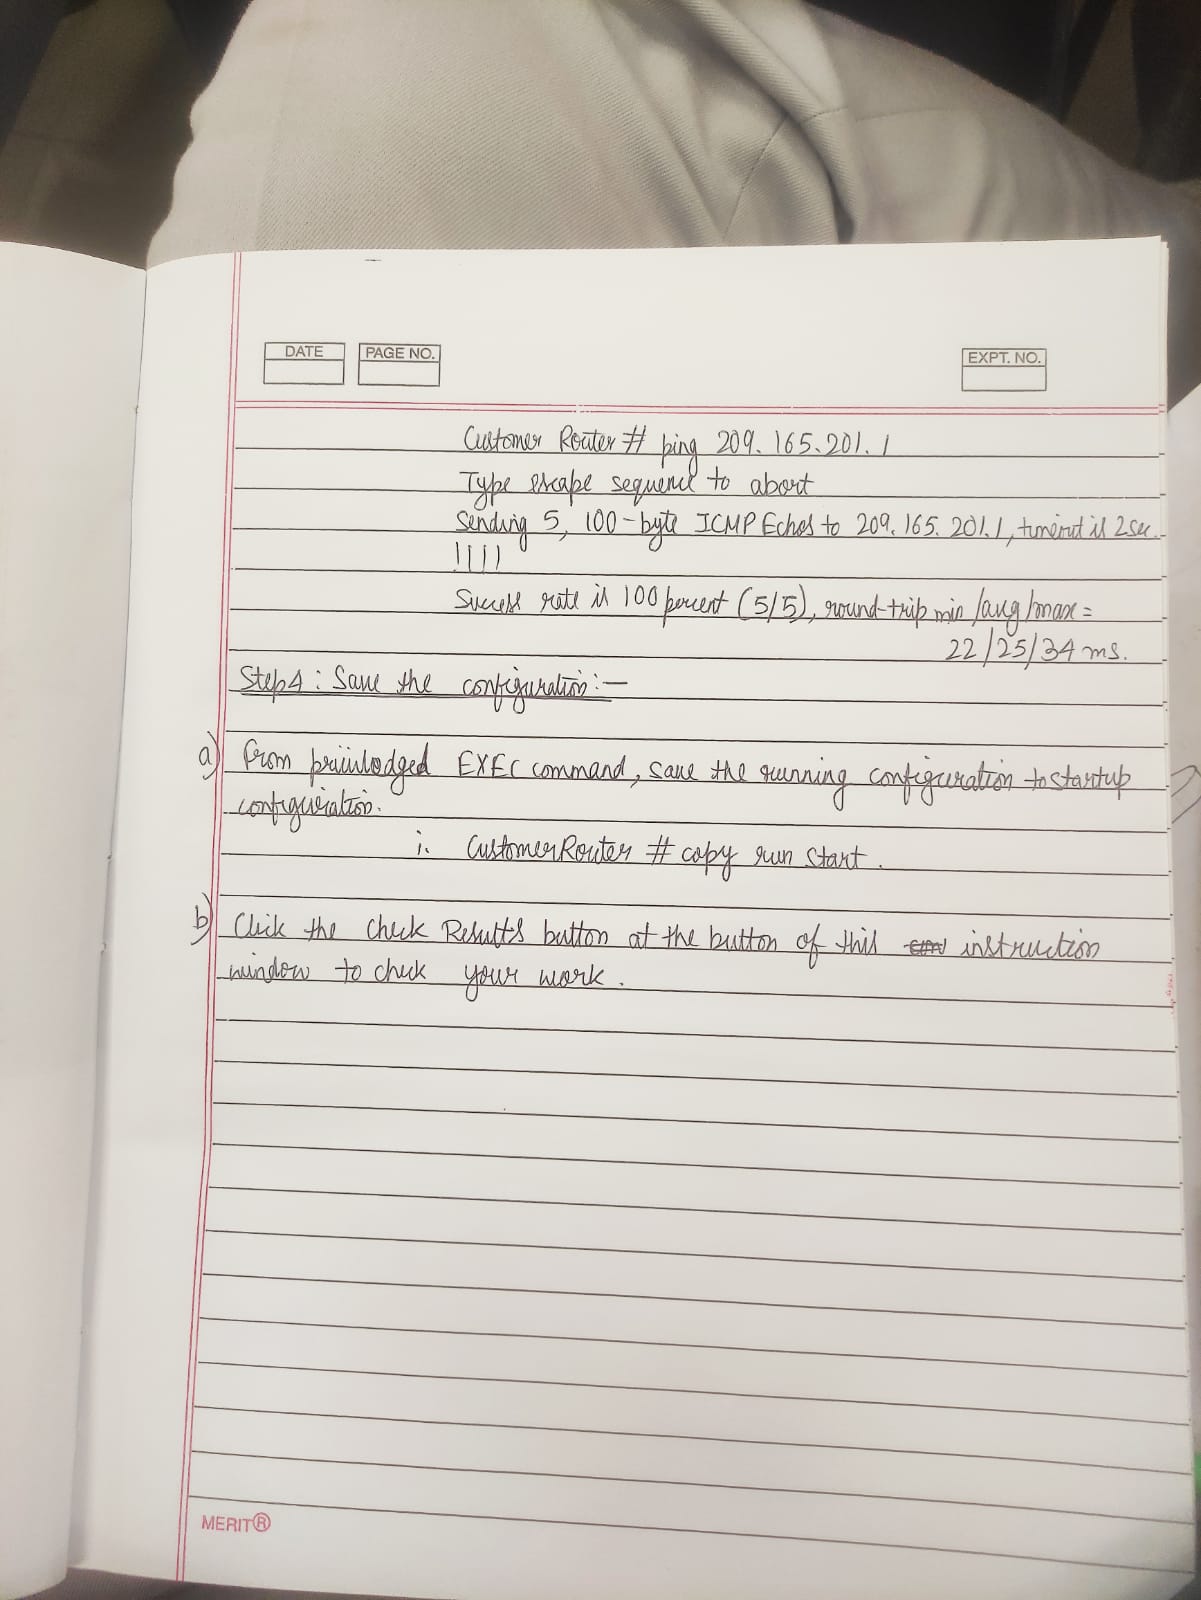 DATE
PAGE NO.
EXPT. NO.
Customer Router # ping 209.165.201.1
Type escape sequence to abort
Sending 5, 100-byte ICMP Echos to 209.165.201.1, timeout is 2 sec.
!!!!
Success rate is 100 percent (5/5), round-trip min/avg/max =
22/25/34 ms.
Step4 : Save the configuration:-
a) From priviledged EXEC command, save the running configuration to startup
configuration.
i. CustomerRouter # copy run start.
b) Click the check Results button at the button of this instruction
window to check your work.
MERIT®